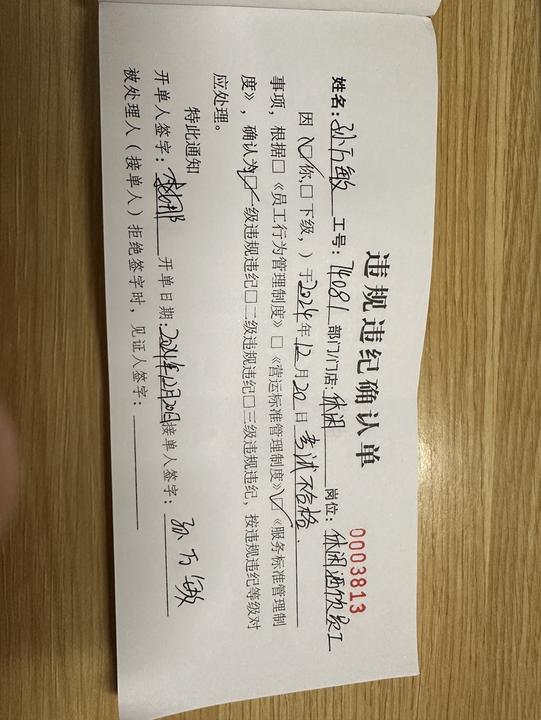 违规违纪确认单
0003813
姓名：孙万敏 工号：74081 部门/门店：休闲 岗位：休闲酒饮员工
因（☑你，□下级，）于2024年12月20日考试不合格.
事项，根据□《员工行为管理制度》□《营运标准管理制度》☑《服务标准管理制
度》，确认为☑一级违规违纪□二级违规违纪□三级违规违纪，按违规违纪等级对
应处理。
特此通知
开单人签字： 开单日期：2024年12月20日接单人签字：孙万敏
被处理人（接单人）拒绝签字时，见证人签字：